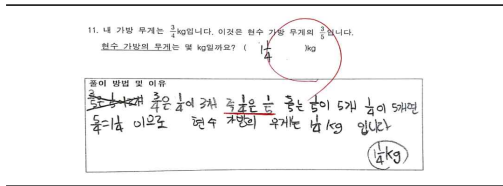 11. 내 가방 무게는 3/4kg입니다. 이것은 현수 가방 무게의 3/5입니다.
현수 가방의 무게는 몇 kg일까요? ( 1 1/4 )kg
풀이 방법 및 이유
3/4은 1/4이 3개 즉 1/4은 1/5 5/5는 1/5이 5개 1/4이 5개면
5/4=1 1/4 이므로 현수 가방의 무게는 1 1/4 kg 입니다
1 1/4kg